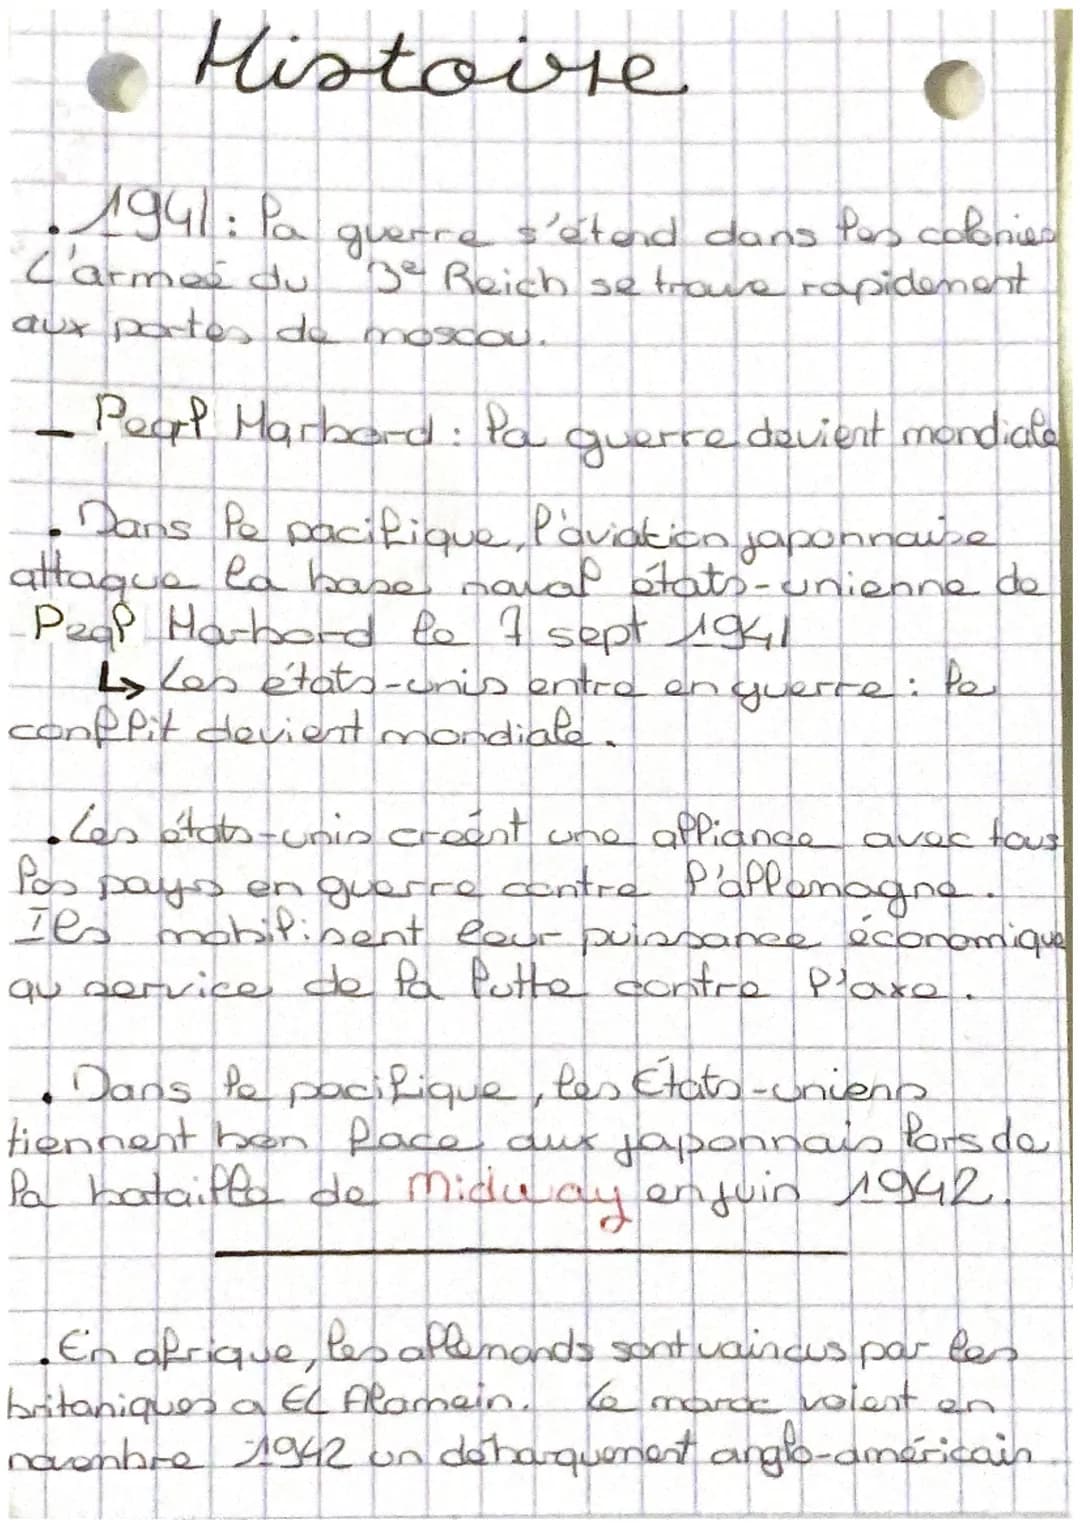 Histoire
. 1941 : la guerre s'étend dans les colonies
L'armeé du 3e Reich se trouve rapidement
aux portes de moscou.
- Pearl Harbord : la guerre devient mondiale
. Dans le pacifique, l'aviation japonnaise
attaque la base naval états-unienne de
Pearl Harbord le 7 sept 1941
↳ Les états-unis entre en guerre : le
conflit devient mondiale.
. Les états-unis creént une alliance avec tous
les pays en guerre contre l'allemagne.
Ils mobilisent leur puissance économique
au service de la lutte contre l'axe.
. Dans le pacifique, les États-uniens
tiennent bon face aux japonnais lors de
la bataille de Midway en juin 1942.
. En afrique, les allemands sont vaincus par les
britaniques a EL Alamein. Le maroc voient en
novembre 1942 un débarquement anglo-américain.